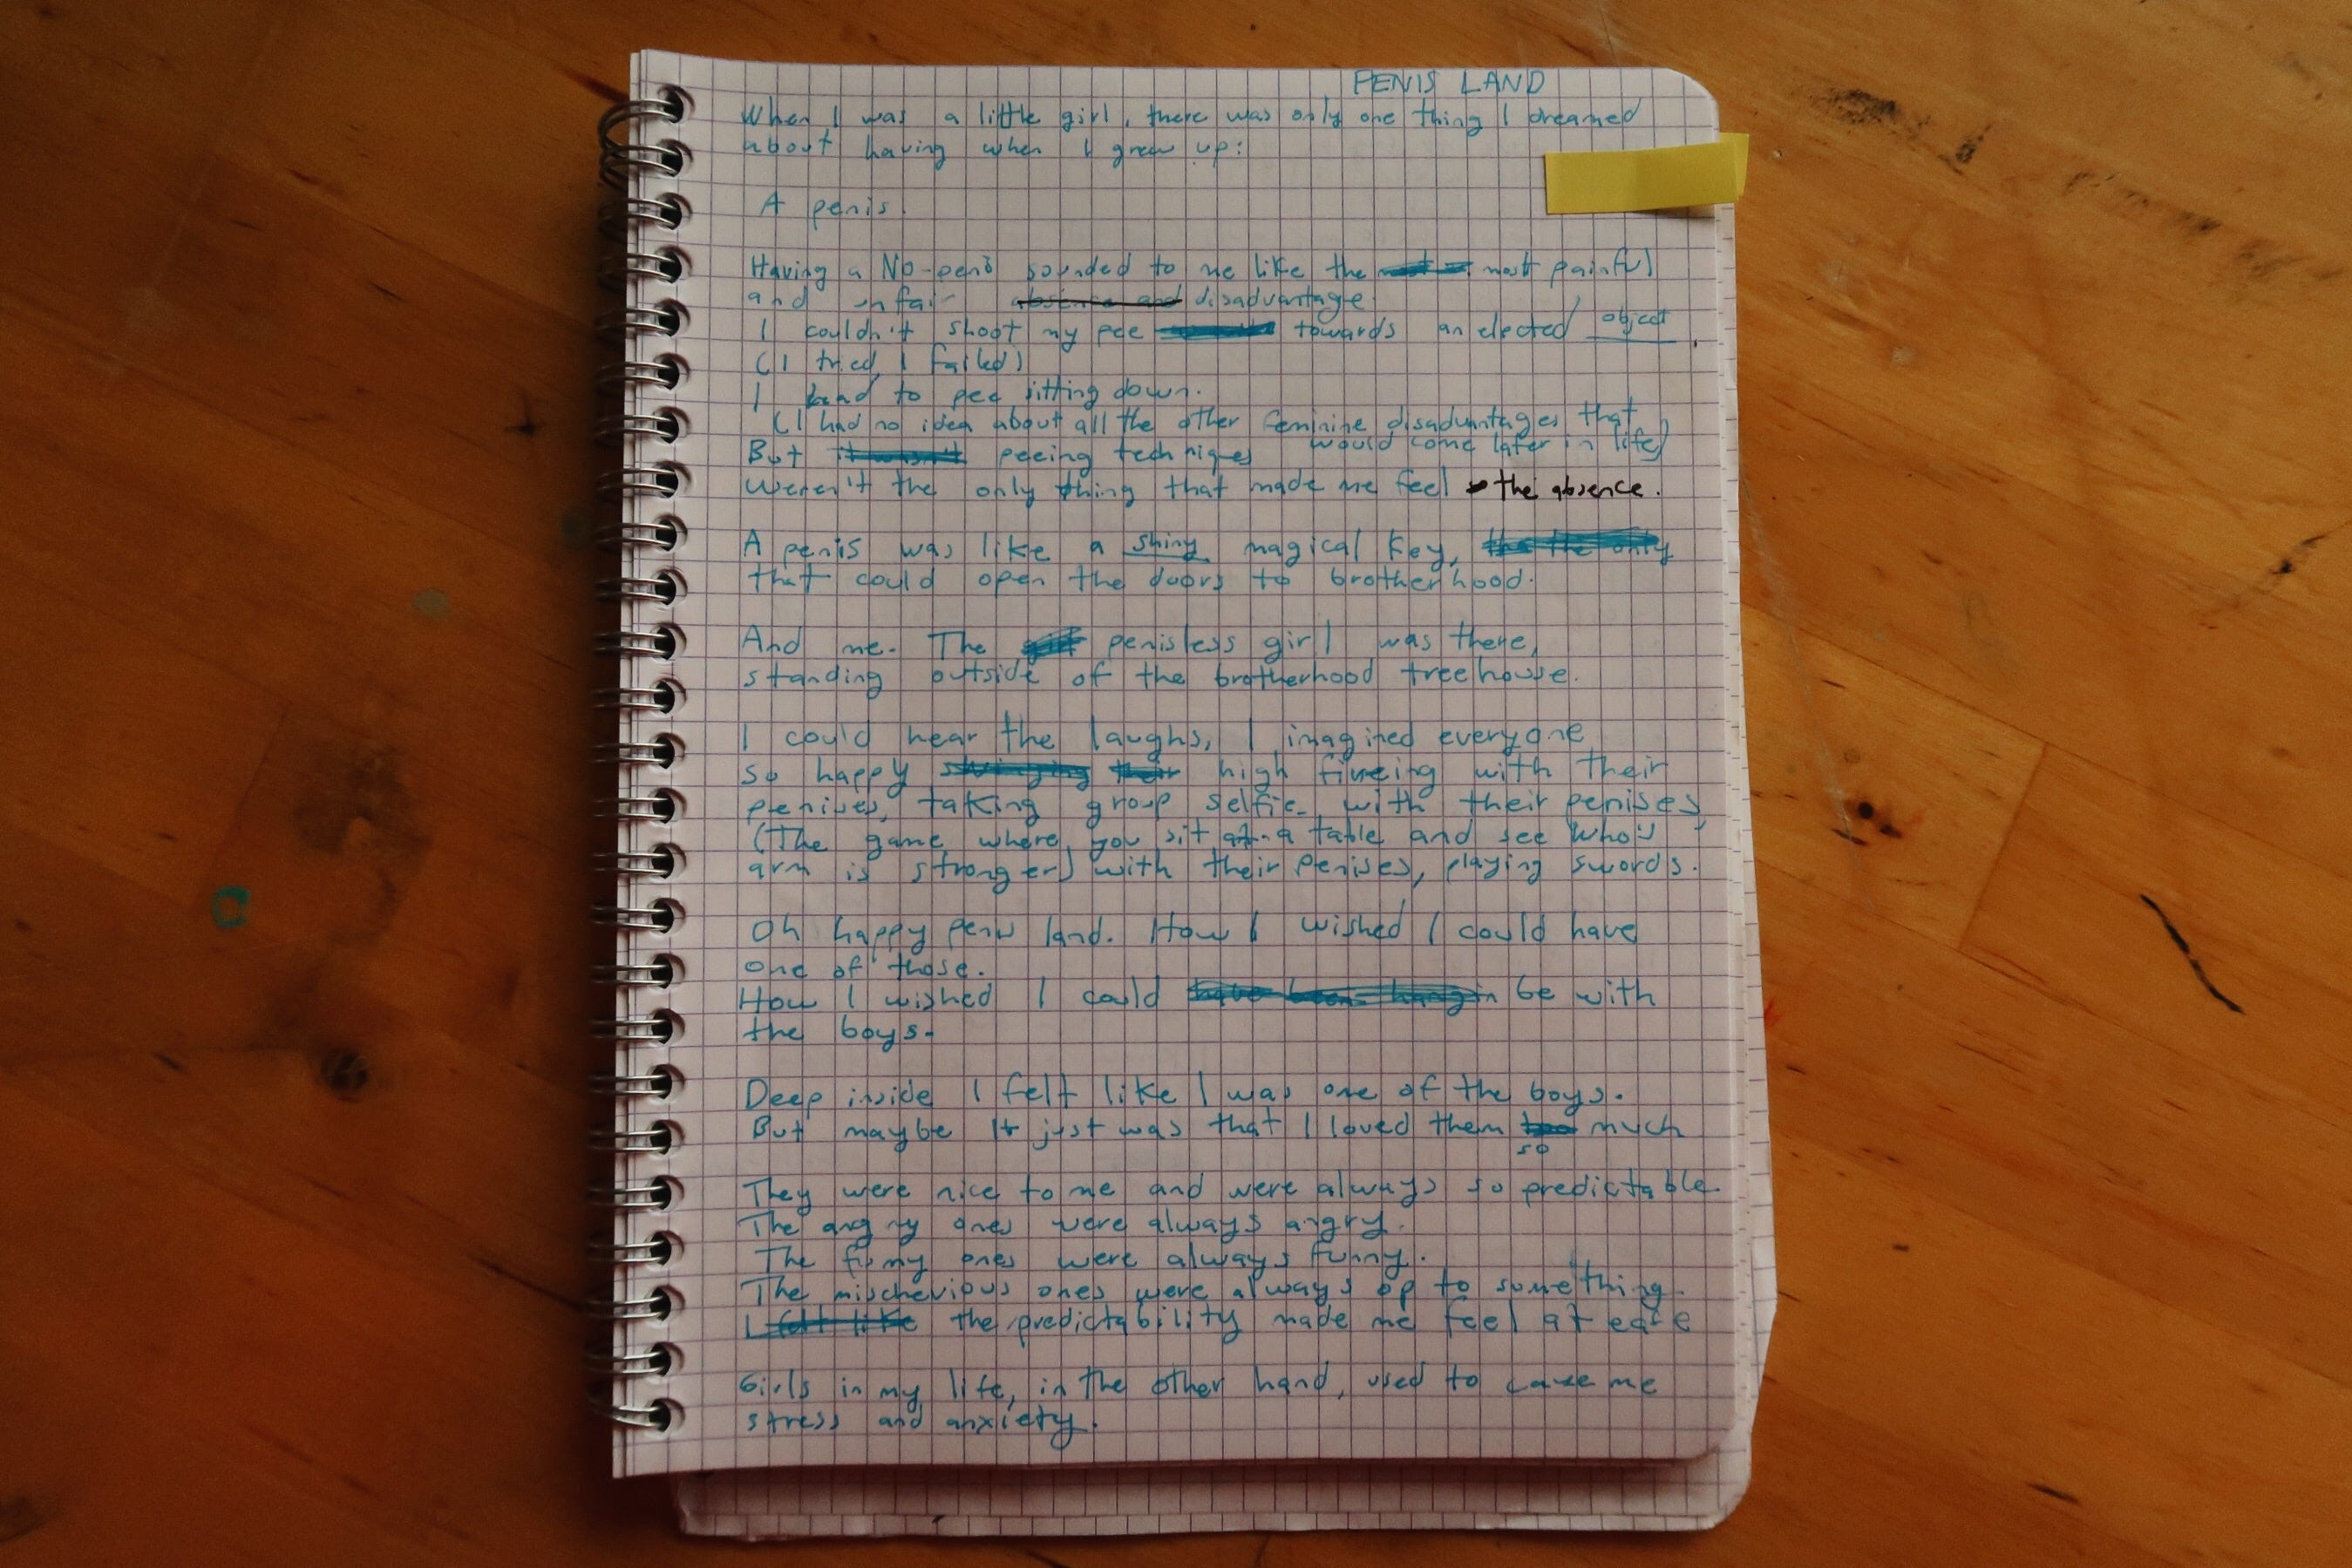 PENIS LAND
When I was a little girl, there was only one thing I dreamed
about having when I grew up:
A penis.
Having a No-penis sounded to me like the most painful
and unfair absence and disadvantage
I couldn't shoot my pee towards an elected object.
(I tried, I failed)
I had to pee sitting down.
(I had no idea about all the other feminine disadvantages that
would come later in life)
But it wasn't peeing techniques
weren't the only thing that made me feel the absence.
A penis was like a shiny magical key, the the only
that could open the doors to brotherhood.
And me. The penisless girl was there,
standing outside of the brotherhood treehouse.
I could hear the laughs, I imagined everyone
so happy swinging their high fiveing with their
penises, taking group selfie with their penises,
(The game where you sit at a table and see who's
arm is stronger) with their penises, playing swords.
Oh happy penis land. How I wished I could have
one of those.
How I wished I could have been hangin be with
the boys.
Deep inside I felt like I was one of the boys.
But maybe it just was that I loved them too much
so
They were nice to me and were always so predictable.
The angry ones were always angry.
The funny ones were always funny.
The mischevious ones were always up to something.
I felt like the predictability made me feel at ease
Girls in my life, in the other hand, used to cause me
stress and anxiety.